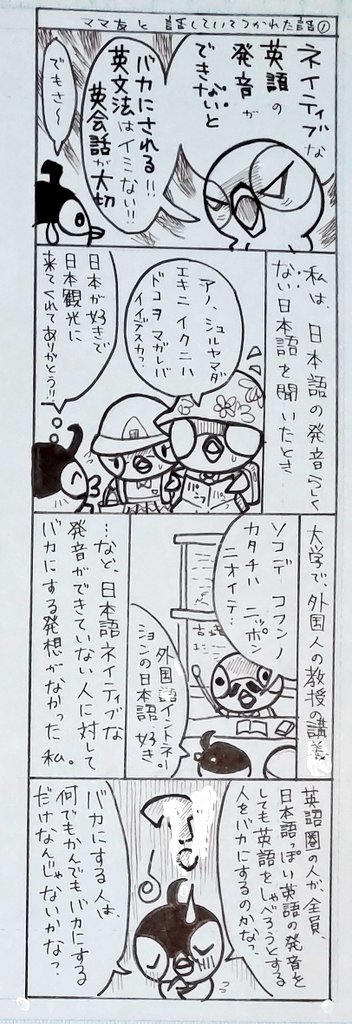 ママ友と話をしていてつかれた話①
ネイティブな
英語の
発音が
できないと
バカにされる!!
英文法はイミない!!
英会話が大切
でもさ〜
私は、日本語の発音らしく
ない日本語を聞いたとき
アノ、シュルヤマダ
エキニイクニハ
ドコヲマガレバ
イイデスカ?
日本が好きで
日本観光に
来てくれてありがとう!!
大学で、外国人の教授の講義
ソコデ コフンノ
カタチハ ニッポン
ニオイテ…
外国語イントネー
ションの日本語 好き。
…など、日本語ネイティブな
発音ができていない人に対して
バカにする発想がなかった私。
英語圏の人が、全員、
日本語っぽい英語の発音を
しても英語をしゃべろうとする
人をバカにするのかな?
バカにする人は、
何でもかんでもバカにする
だけなんじゃないかな?